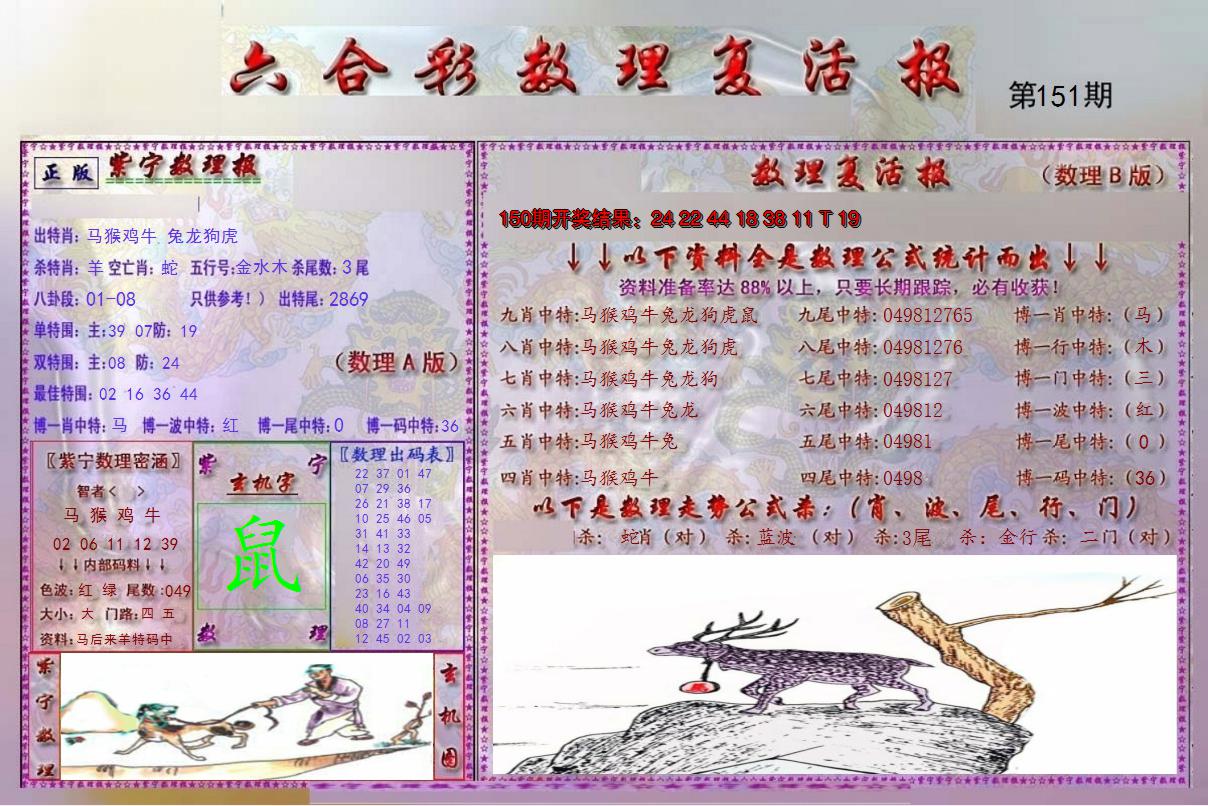 六合彩数理复活报
第151期
正版
紫宁数理报
出特肖：马猴鸡牛 兔龙狗虎
杀特肖：羊 空亡肖：蛇 五行号:金水木 杀尾数：3尾
八卦段：01-08 只供参考！） 出特尾：2869
单特围：主:39 07防：19
双特围：主:08 防：24
（数理A版）
最佳特围：02 16 36 44
博一肖中特：马 博一波中特：红 博一尾中特：0 博一码中特:36
〖紫宁数理密涵〗
智者< >
马 猴 鸡 牛
02 06 11 12 39
↓↓内部码料↓↓
色波：红 绿 尾数:049
大小：大 门路:四 五
资料:马后来羊特码中
紫 宁
玄机字
鼠
数 理
〖数理出码表〗
22 37 01 47
07 29 36
26 21 38 17
10 25 46 05
31 41 33
14 13 32
42 20 49
06 35 30
23 16 43
40 34 04 09
08 27 11
12 45 02 03
紫宁数理
玄机图
数理复活报
（数理B版）
150期开奖结果：24 22 44 18 38 11 T 19
↓↓以下资料全是数理公式统计而出↓↓
资料准备率达88%以上，只要长期跟踪，必有收获！
九肖中特:马猴鸡牛兔龙狗虎鼠 九尾中特: 049812765 博一肖中特:（马）
八肖中特:马猴鸡牛兔龙狗虎 八尾中特: 04981276 博一行中特:（木）
七肖中特:马猴鸡牛兔龙狗 七尾中特: 0498127 博一门中特:（三）
六肖中特:马猴鸡牛兔龙 六尾中特: 049812 博一波中特:（红）
五肖中特:马猴鸡牛兔 五尾中特: 04981 博一尾中特:（0）
四肖中特:马猴鸡牛 四尾中特: 0498 博一码中特:（36）
以下是数理走势公式杀：（肖、波、尾、行、门）
杀： 蛇肖（对） 杀:蓝波 （对） 杀:3尾 杀： 金行 杀： 二门（对）